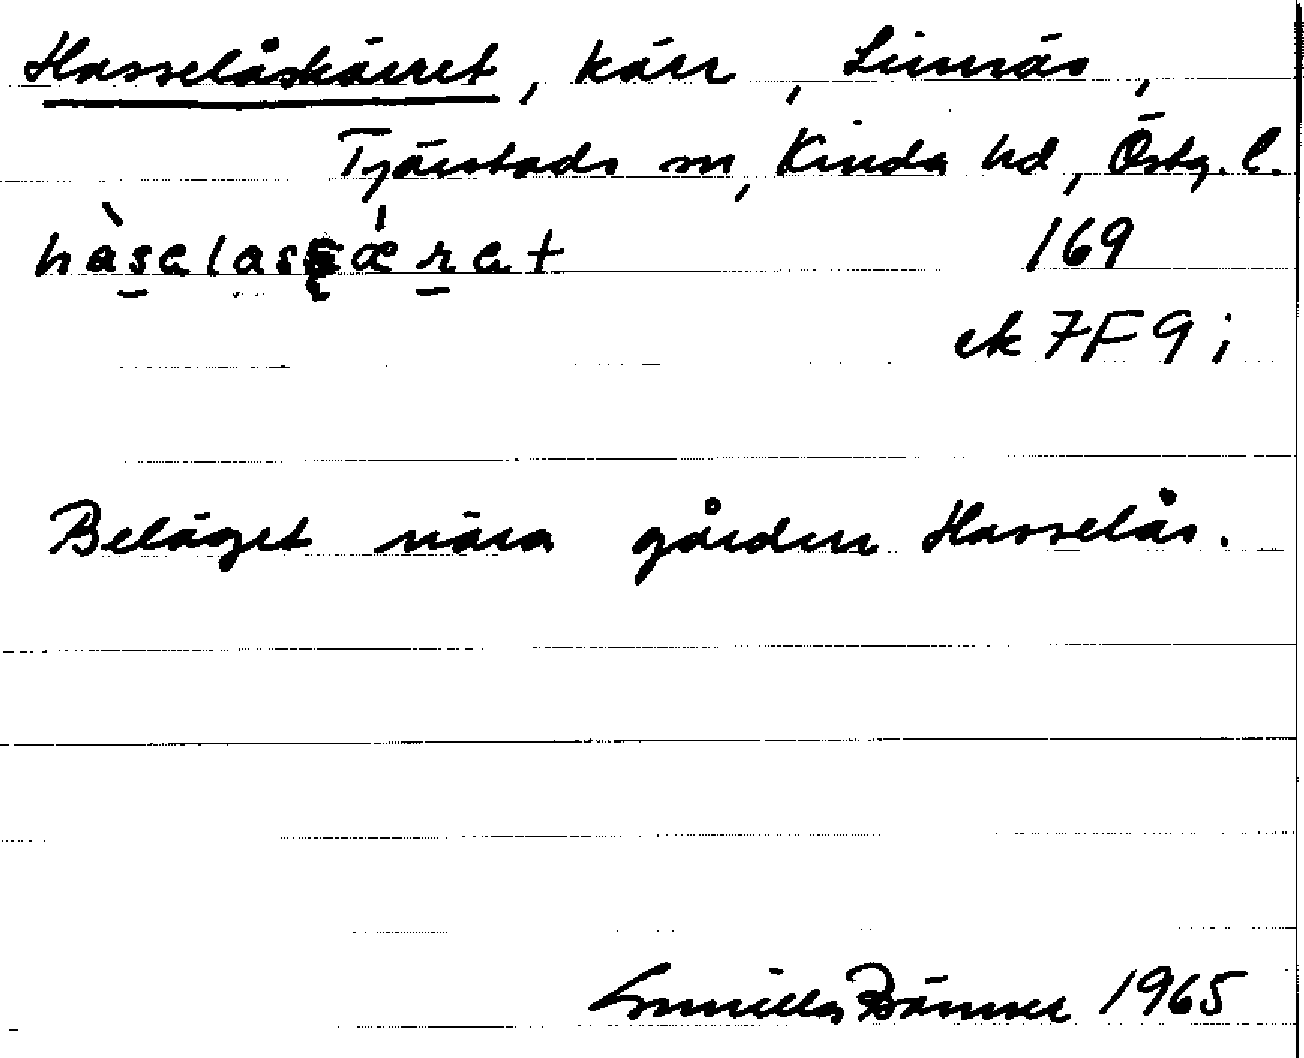 Hasselåskärret, kärr, Linnäs,
Tjärstads sn, Kinda hd, Östg. l.
169
ek 7F 9 i
Beläget nära gården Hasselås.
Gunilla 1965